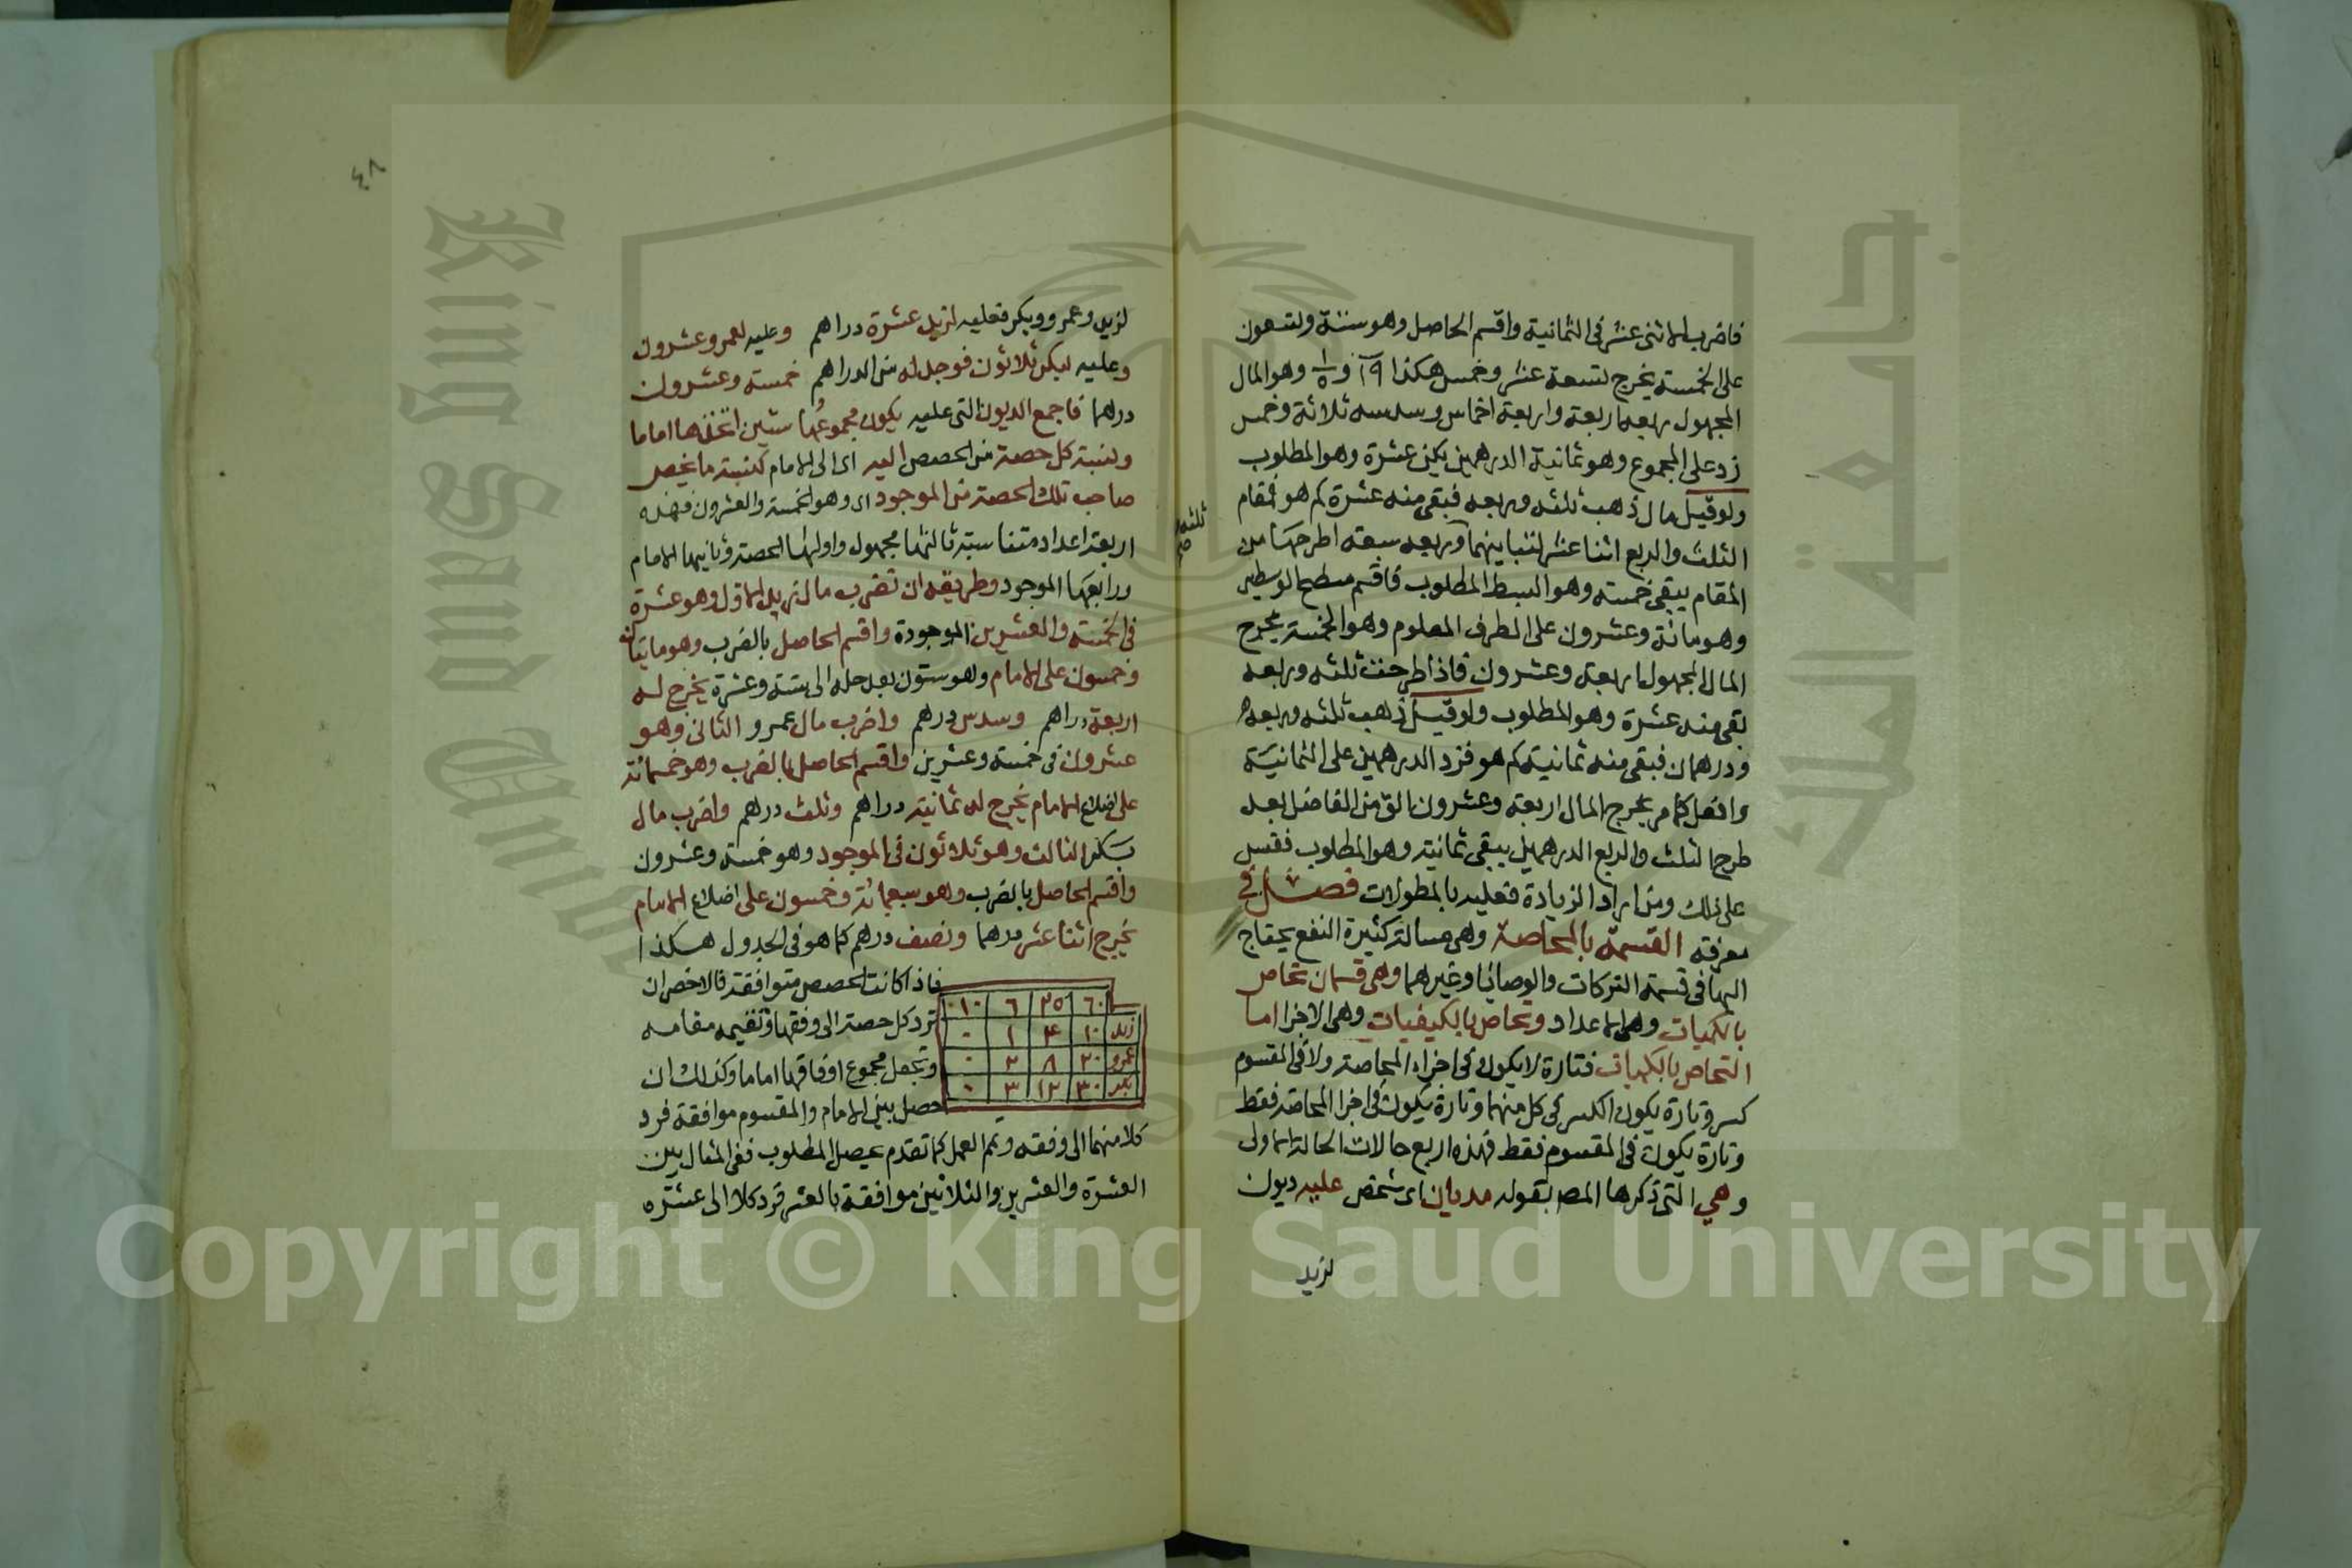 فاضرب الاثنى عشر فى الثمانية واقسم الحاصل وهو ستة وتسعون
على الخمسة يخرج تسعة عشر وخمس هكذا ١٩ و ١/٥ وهو المال
المجهول ربعه اربعة واربعة اخماس وسدسه ثلاثة وخمس
زد على المجموع وهو ثمانية الدرهمين يكن عشرة وهو المطلوب
ولو قيل مال ذهب ثلثه وربعه فبقى منه عشرة كم هو فمقام
الثلث والربع اثنا عشر لتباينهما وربعه سبعة اطرحها من
ثلثه
صح
المقام يبقى خمسة وهو البسط المطلوب فاقسم مسطح الوسطين
وهو مائة وعشرون على الطرف المعلوم وهو الخمسة يخرج
المال المجهول اربعة وعشرون فاذا طرحت ثلثه وربعه
بقى منه عشرة وهو المطلوب ولو قيل ذهب ثلثه وربعه
ودرهمان فبقى منه ثمانية كم هو فزد الدرهمين على الثمانية
وافعل كما مر يخرج المال اربعة وعشرون الق من الفاضل بعد
طرح الثلث والربع الدرهمين يبقى ثمانية وهو المطلوب فقس
على ذلك ومن اراد الزيادة فعليه بالمطولات فصل فى
معرفة القسمة بالمحاصة وهى مسالة كثيرة النفع يحتاج
اليها فى قسمة التركات والوصايا وغيرهما وهى قسمان تحاص
بالكميات وهى الاعداد وتحاص بالكيفيات وهى الاجزا اما
التحاص بالكميات فتارة لا يكون فى اجزاء المحاصة ولا فى المقسوم
كسر وتارة يكون الكسر فى كل منهما وتارة يكون فى اجزا المحاصة فقط
وتارة يكون فى المقسوم فقط فهذه اربع حالات الحالة الاولى
وهي التى ذكرها المص بقوله مديان اى شخص عليه ديون
لزيد
٤٨
لزيد وعمرو وبكر فعليه لزيد عشرة دراهم وعليه لعمرو عشرون
وعليه لبكر ثلاثون فوجد له من الدراهم خمسة وعشرون
درهما فاجمع الديون التى عليه يكون مجموعها ستين اتخذها اماما
ونسبة كل حصة من الحصص اليه اى الى الامام كنسبة ما يخص
صاحب تلك الحصة من الموجود اى وهو الخمسة والعشرون فهذه
اربعة اعداد متناسبة ثالثها مجهول واولها الحصة وثانيها الامام
ورابعها الموجود وطريقه ان تضرب مال زيد الاول وهو عشرة
فى الخمسة والعشرين الموجودة واقسم الحاصل بالضرب وهو مايتان
وخمسون على الامام وهو ستون بعد حله الى ستة وعشرة يخرج له
اربعة دراهم وسدس درهم واضرب مال عمرو الثانى وهو
عشرون فى خمسة وعشرين واقسم الحاصل بالضرب وهو خمسمائة
على اضلاع الامام يخرج له ثمانية دراهم وثلث درهم واضرب مال
بكر الثالث وهو ثلاثون فى الموجود وهو خمسة وعشرون
واقسم الحاصل بالضرب وهو سبعمائة وخمسون على اضلاع الامام
يخرج اثنا عشر درهما ونصف درهم كما هو فى الجدول هكذا
٦٠ ٢٥ ٦ ١٠
زيد ١٠ ٤ ١ ٠
عمرو ٢٠ ٨ ٢ ٠
بكر ٣٠ ١٢ ٣ ٠
فاذا كانت الحصص متوافقة فالاخصر ان
ترد كل حصة الى وفقها وتقيمه مقامه
وتجعل مجموع اوفاقها اماما وكذلك ان
حصل بين الامام والمقسوم موافقة فرد
كلا منهما الى وفقه وتمم العمل كما تقدم يحصل المطلوب ففى المثال بين
العشرة والعشرين والثلاثين موافقة بالعشر فرد كلا الى عشره
Copyright © King Saud University
King Saud University
جامعة الملك